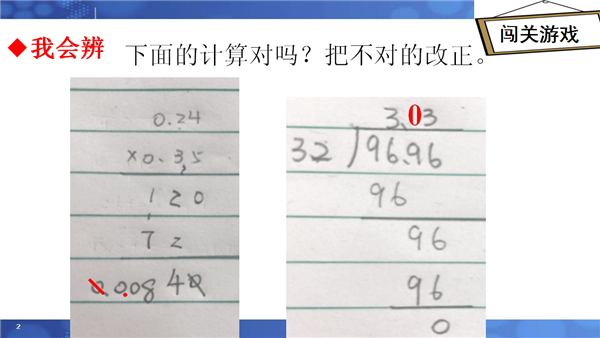 闯关游戏
◆我会辨 下面的计算对吗？把不对的改正。
0.24
×0.35
120
72
0.0.0840
3.03
32)96.96
96
96
96
0
2